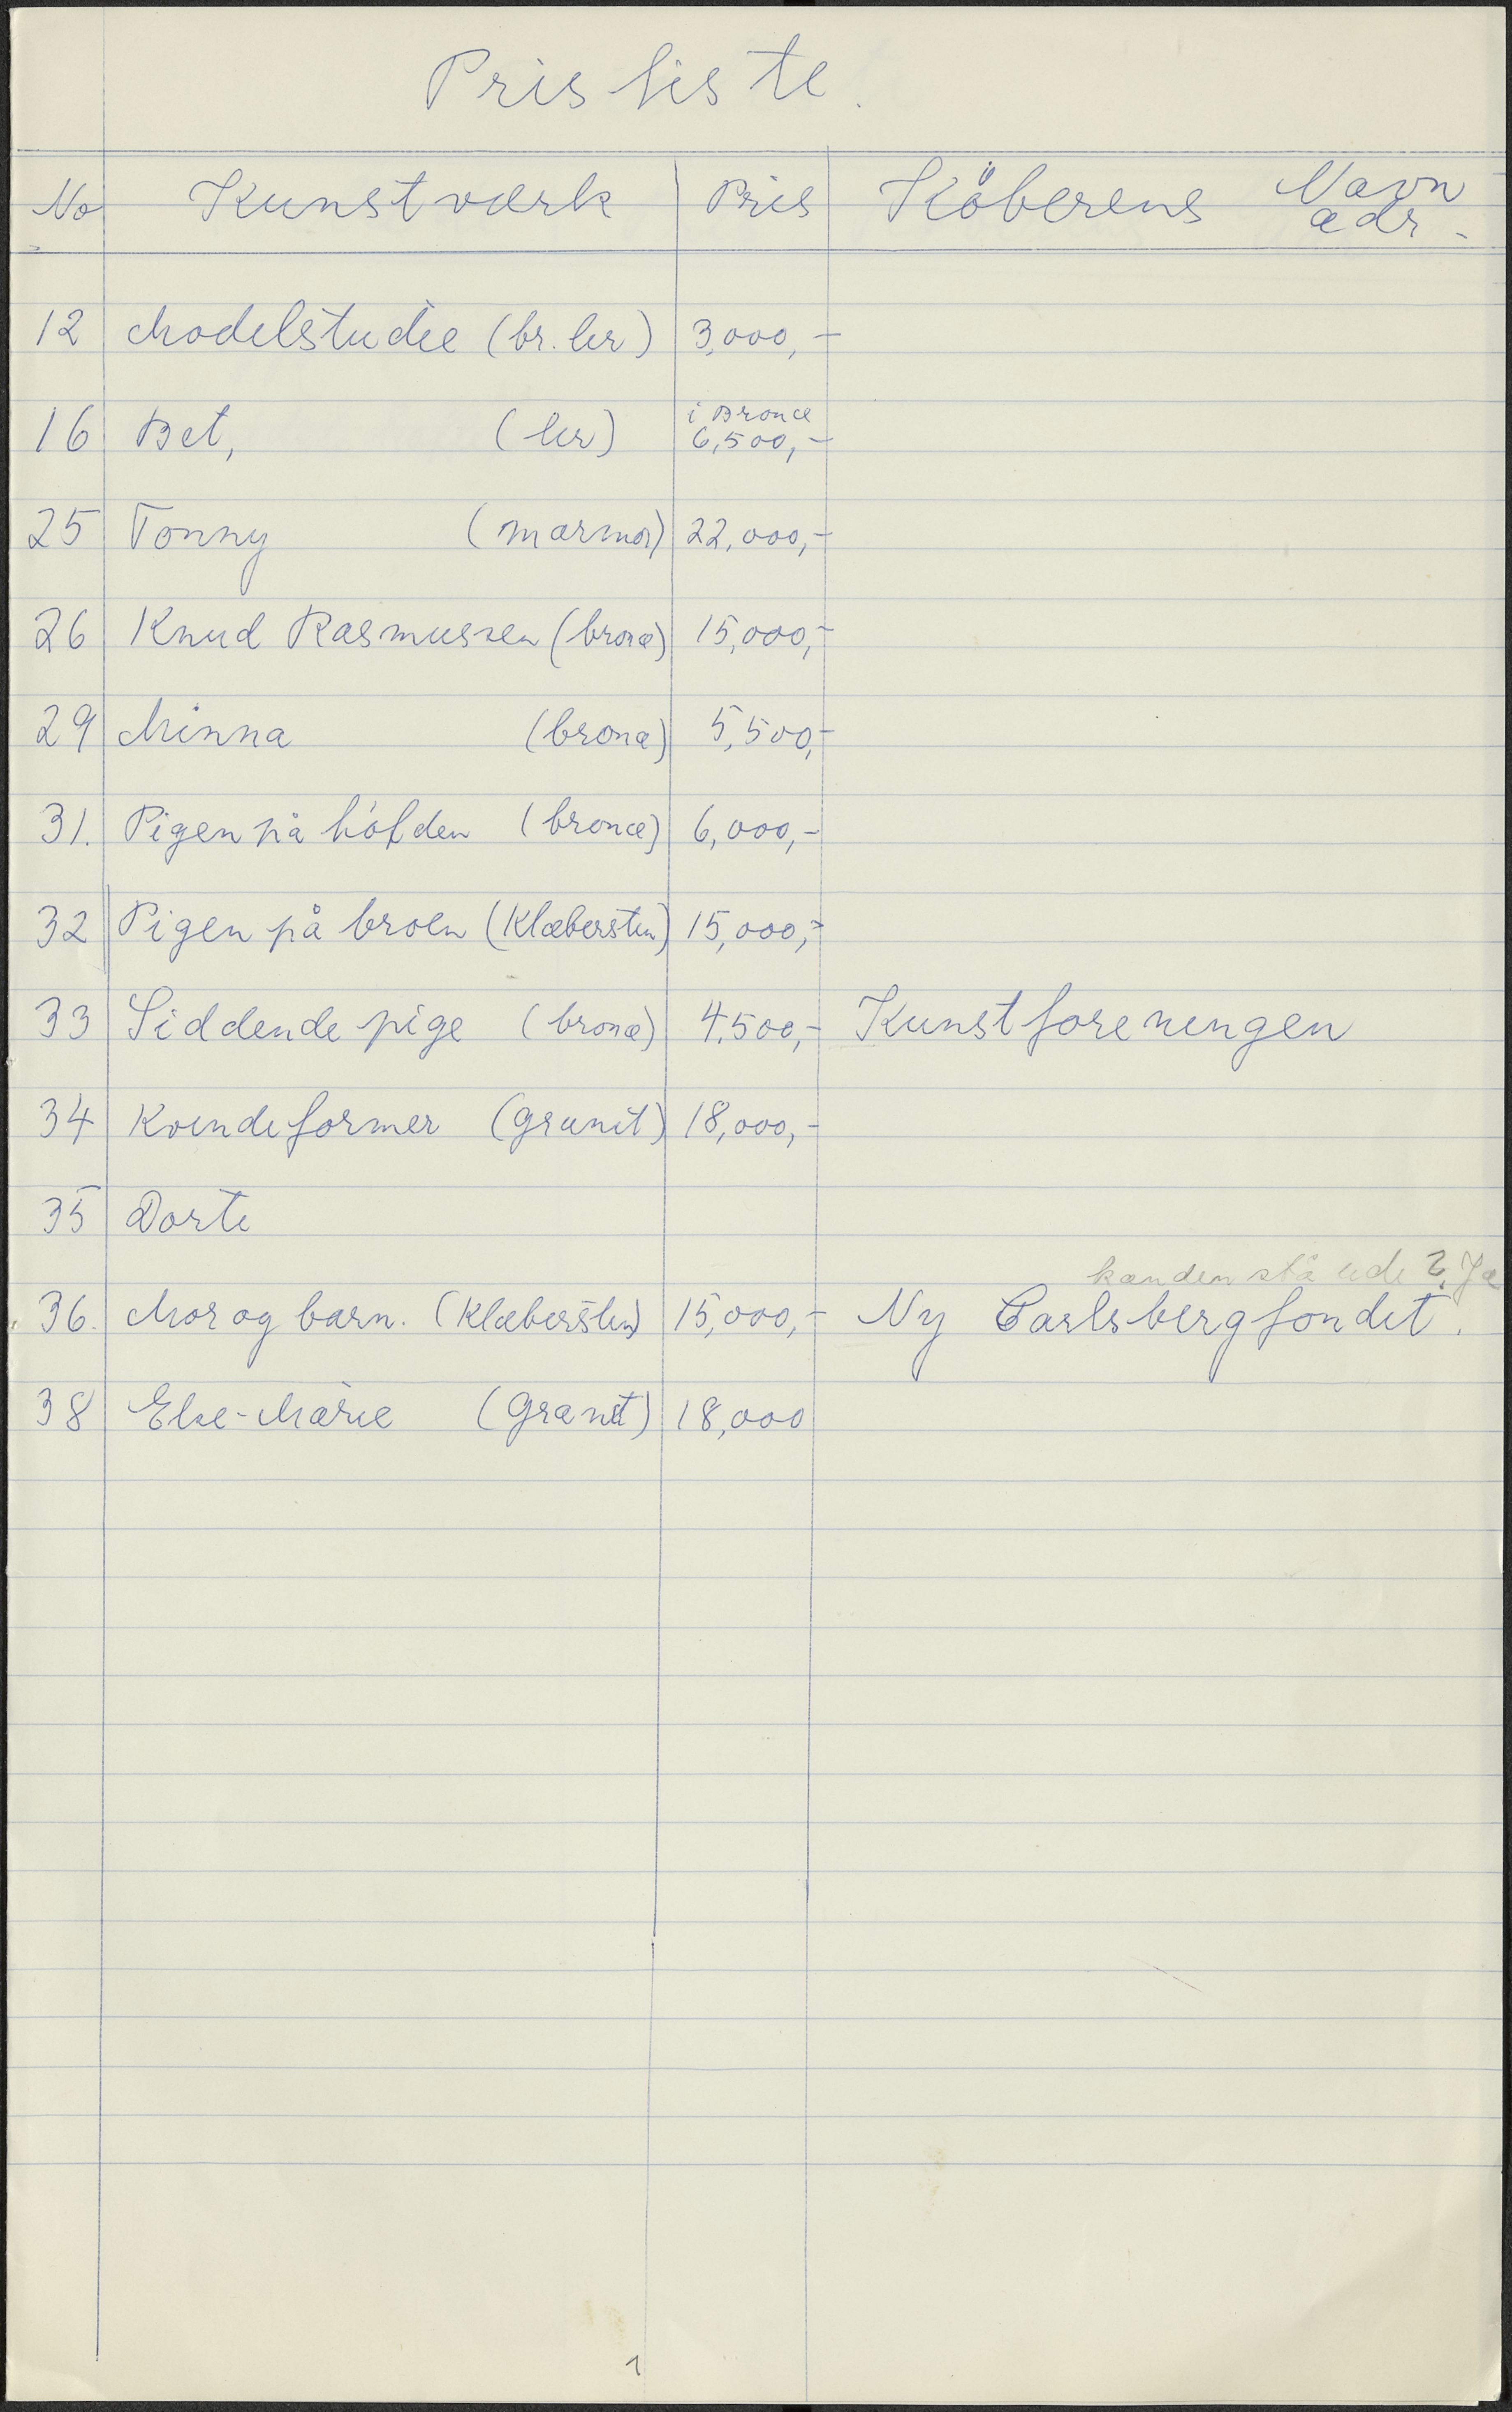 Prisliste.
No Kunstværk Pris Köberens Navn
adr.
12 Modelstudie (br. ler) 3,000,-
i Bronce
16 Bet, (ler) 6,500,-
25 Tonny (marmor) 22,000,-
26 Knud Rasmussen (bronce) 15,000,-
29 Minna (bronce) 5,500,-
31. Pigen på hófden (bronce) 6,000,-
32 Pigen på broen (Klæbersten) 15,000,-
33 Siddende pige (bronce) 4,500,- Kunstforeningen
34 Kvindeformer (granit) 18,000,-
35 Dorte
kan den stå ude? Ja
36. Mor og barn. (Klæbersten) 15,000,- Ny Carlsbergfondet.
38 Else-Marie (granit) 18,000
1